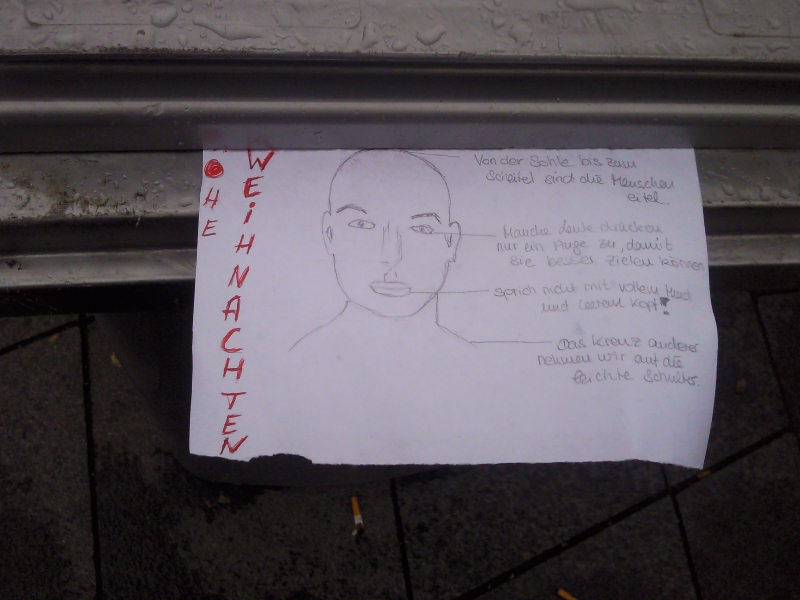 OHE
WEiHNACHTEN
Von der Sohle bis zum
Scheitel sind die Menschen
eitel.
Manche Leute drücken
nur ein Auge zu, damit
sie besser zielen können
Sprich nicht mit vollem Mund
und leerem Kopf!
Das Kreuz anderer
nehmen wir auf die
leichte Schulter.